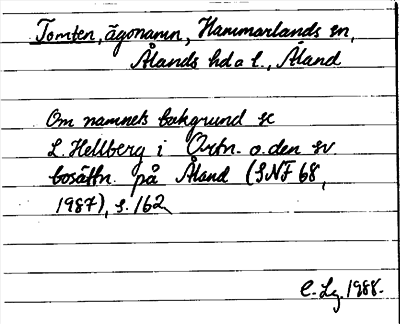 Tomten, ägonamn, Hammarlands sn,
Ålands hd o l., Åland
Om namnets bakgrund se
L. Hellberg i Ortn. o. den sv.
bosättn. på Åland (SNF 68,
1987), s. 162
C. Lg. 1988.